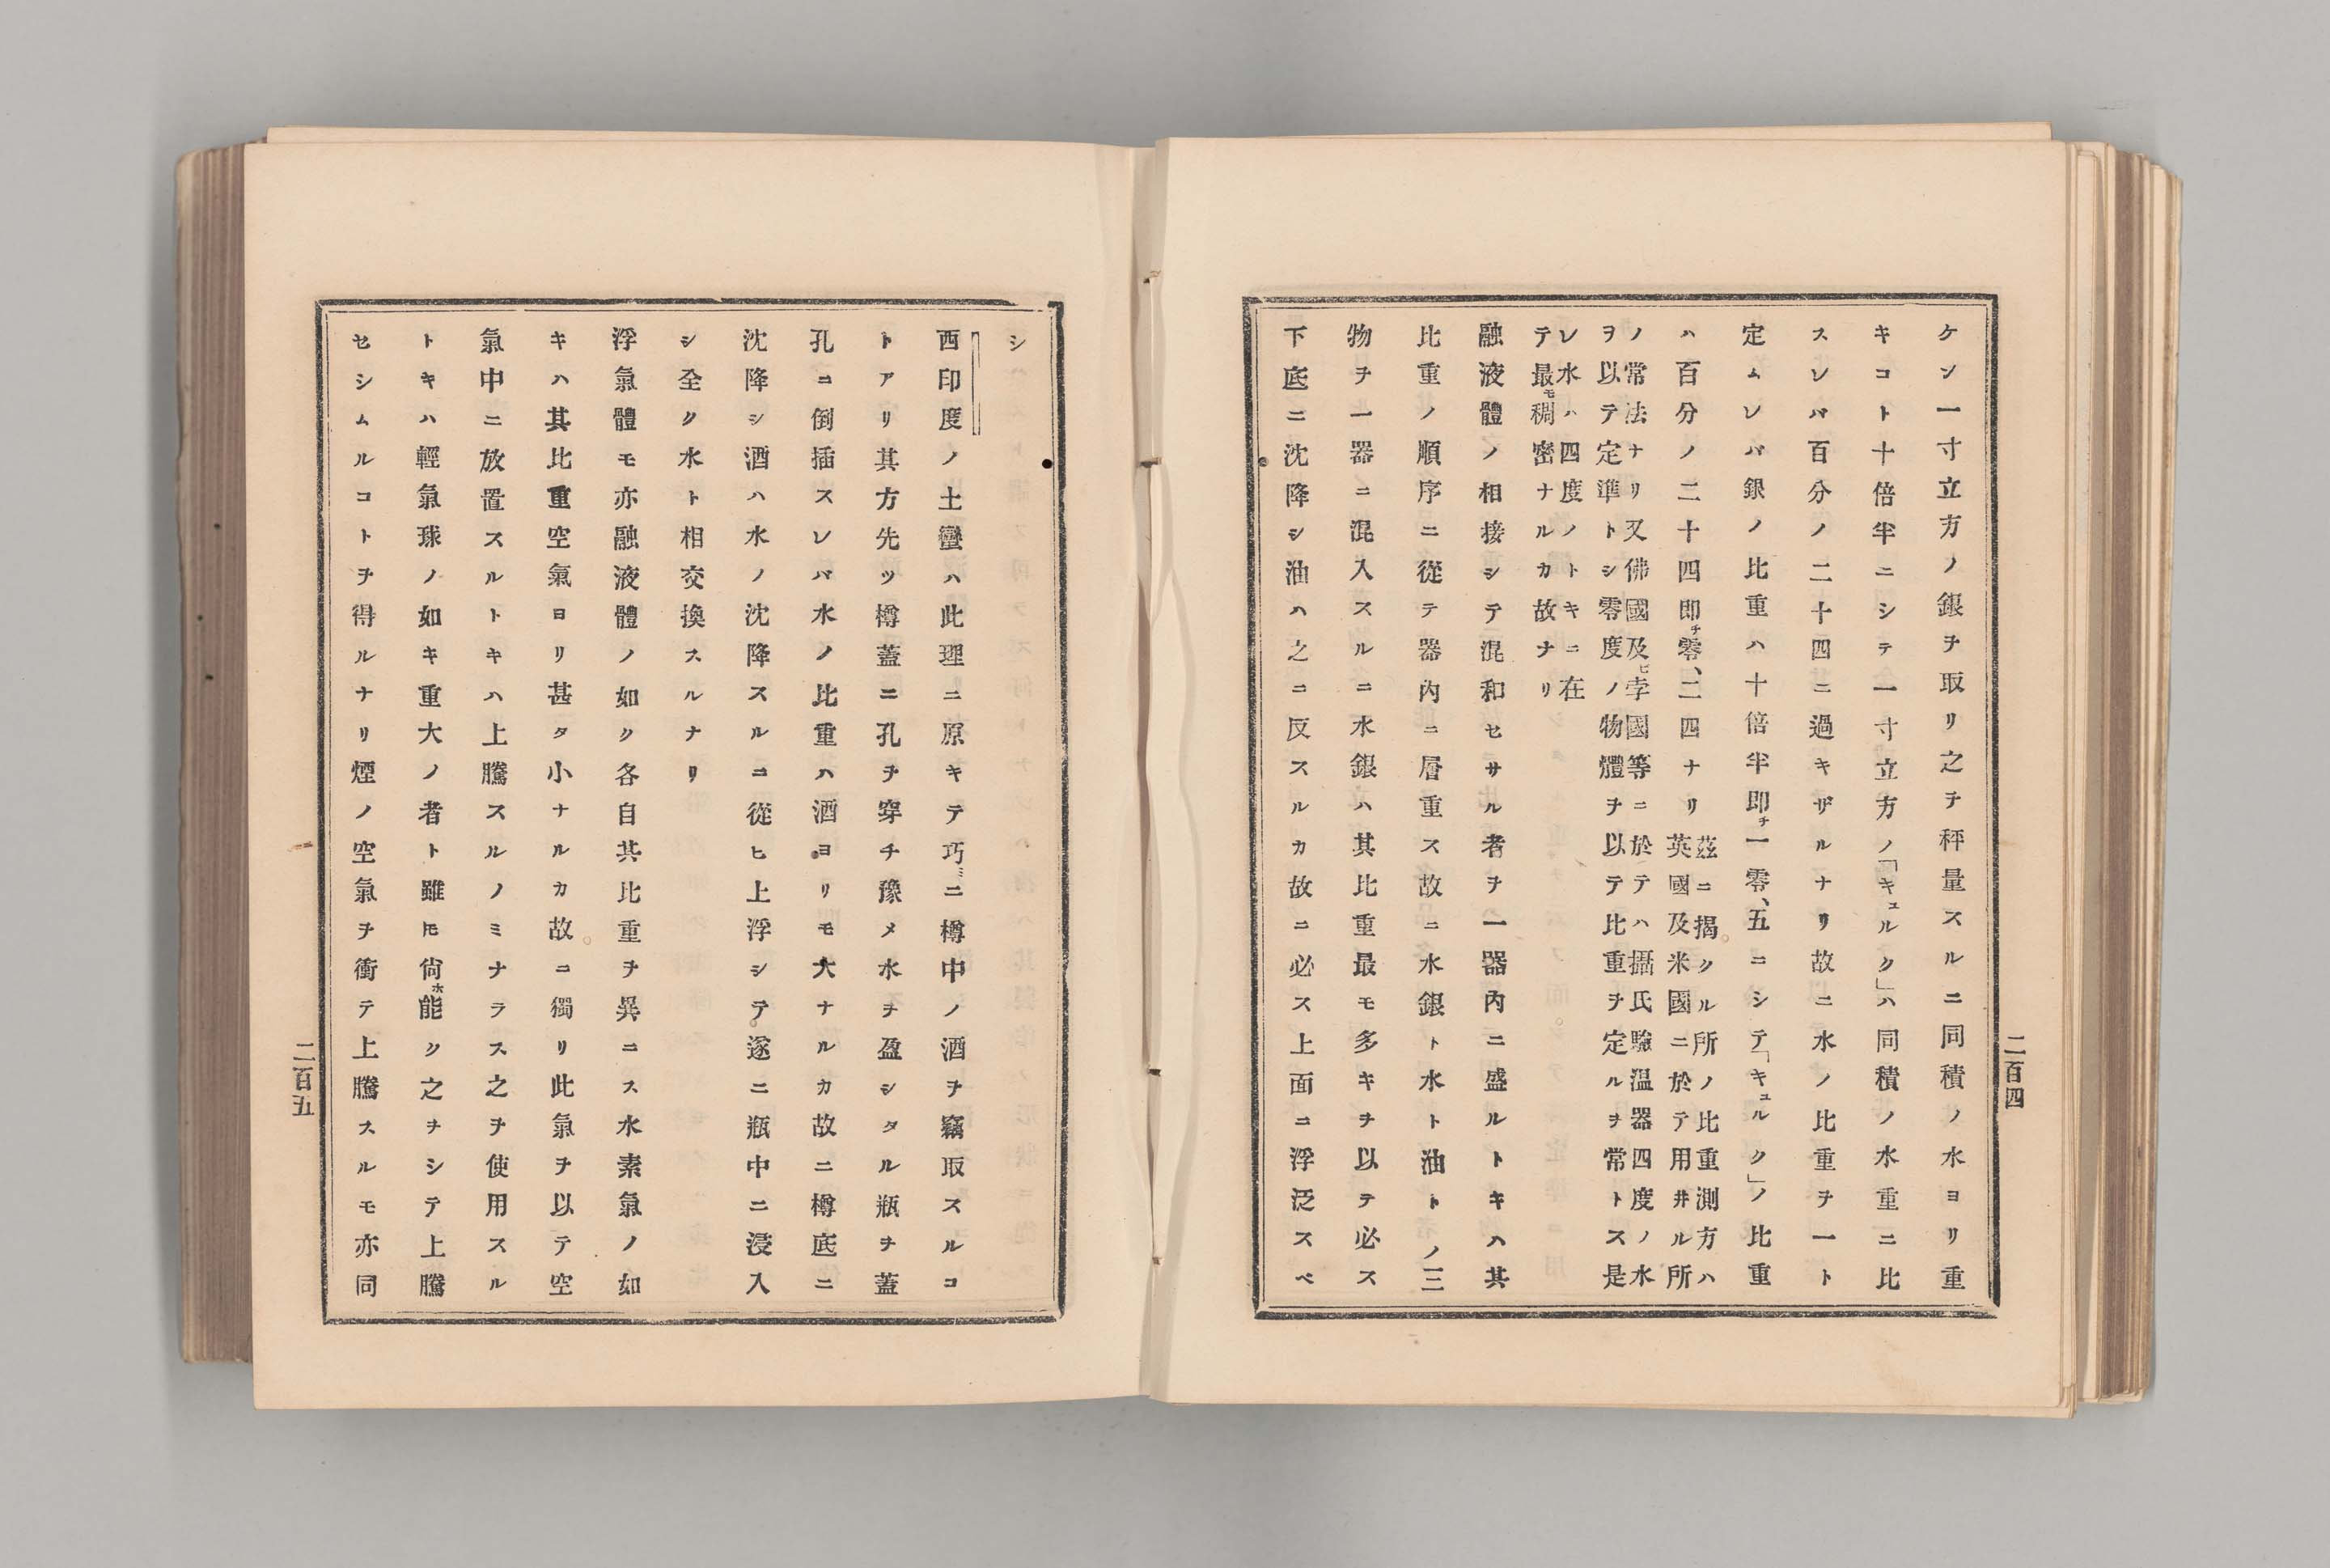 二百四
ケン一寸立方ノ銀ヲ取リ之ヲ秤量スルニ同積ノ水ヨリ重
キコト十倍半ニシテ一寸立方ノ「キュルク」ハ同積ノ水重ニ比
スレバ百分ノ二十四ニ過キザルナリ故ニ水ノ比重ヲ一ト
定ムレバ銀ノ比重ハ十倍半即チ一零、五ニシテ「キュルク」ノ比重
ハ百分ノ二十四即チ零、二四ナリ
茲ニ揭クル所ノ比重測方ハ
英國及米國ニ於テ用井ル所
ノ常法ナリ又佛國及ヒ孛國等ニ於テハ攝氏驗温器四度ノ水
ヲ以テ定準トシ零度ノ物體ヲ以テ比重ヲ定ルヲ常トス是
レ水ハ四度ノトキニ在
テ最モ稠密ナルカ故ナリ
融液體ノ相接シテ混和セサル者ヲ一器內ニ盛ルトキハ其
比重ノ順序ニ從テ器內ニ層重ス故ニ水銀ト水ト油トノ三
物ヲ一器ニ混入スルニ水銀ハ其比重最モ多キヲ以テ必ス
下底ニ沈降シ油ハ之ニ反スルカ故ニ必ス上面ニ浮泛スベ
シ
西印度ノ土蠻ハ此理ニ原キテ巧ミニ樽中ノ酒ヲ竊取スルコ
トアリ其方先ツ樽蓋ニ孔ヲ穿チ豫メ水ヲ盈シタル瓶ヲ蓋
孔ニ倒插スレバ水ノ比重ハ酒ヨリモ大ナルカ故ニ樽底ニ
沈降シ酒ハ水ノ沈降スルニ從ヒ上浮シテ遂ニ瓶中ニ浸入
シ全ク水ト相交換スルナリ
浮氣體モ亦融液體ノ如ク各自其比重ヲ異ニス水素氣ノ如
キハ其比重空氣ヨリ甚タ小ナルカ故ニ獨リ此氣ヲ以テ空
氣中ニ放置スルトキハ上騰スルノミナラス之ヲ使用スル
トキハ輕氣球ノ如キ重大ノ者ト雖𪜈尙ホ能ク之ヲシテ上騰
セシムルコトヲ得ルナリ煙ノ空氣ヲ衝テ上騰スルモ亦同
二百五